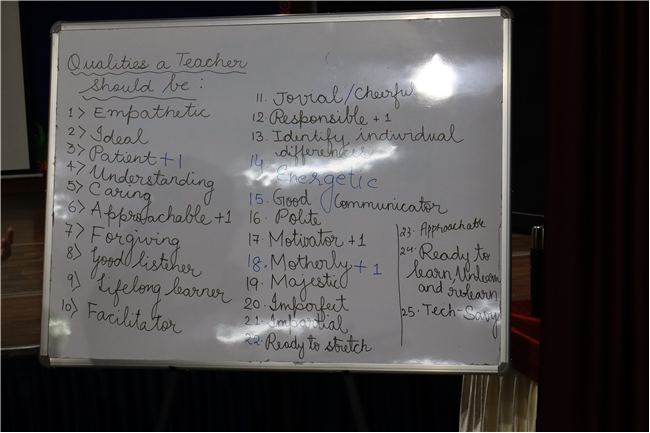 Qualities a Teacher
should be :
1> Empathetic
2> Ideal
3> Patient +1
4> Understanding
5> Caring
6> Approachable +1
7> Forgiving
8> Good listener
9> Lifelong learner
10> Facilitator
11. Jovial/Cheerful
12. Responsible +1
13. Identify individual
differences
14. Energetic
15. Good Communicator
16. Polite
17. Motivator +1
18. Motherly +1
19. Majestic
20. Imperfect
21. Impartial
22. Ready to stretch
23. Approachable
24. Ready to
learn, Unlearn
and relearn
25. Tech-Savy